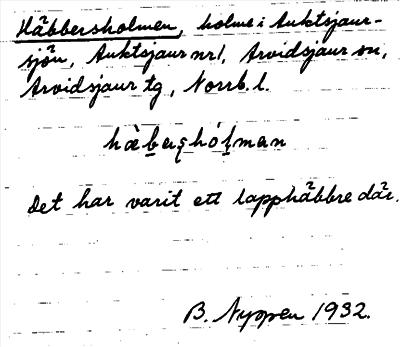 Häbbersholmen, holme i Auktsjaur-
sjön, Auktsjaur nr1, Arvidsjaur sn,
Arvidsjaur tg, Norrb. l.
Det har varit ett lapphäbbre där.
B. Nyppen 1932.